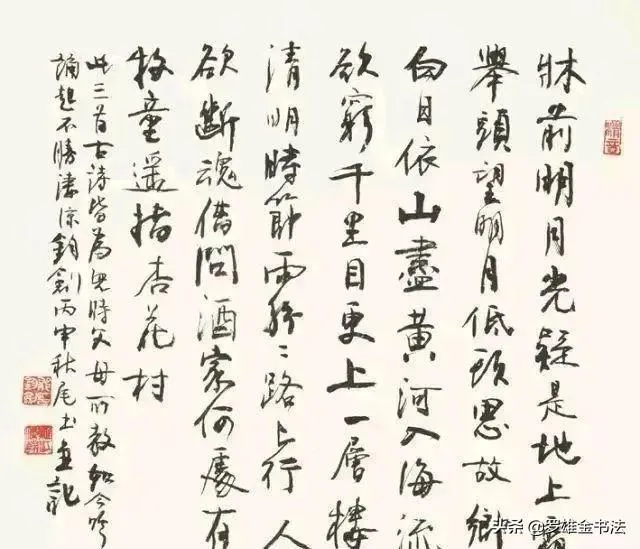 牀前明月光疑是地上霜
舉頭望明月低頭思故鄉
白日依山盡黃河入海流
欲窮千里目更上一層樓
清明時節雨紛〻路上行人
欲斷魂借問酒家何處有
牧童遥指杏花村
此三首古詩皆為兒時父母所教如今吟
誦起不勝淒涼鈞劍丙申秋尾書並記
头条 @罗雄金书法